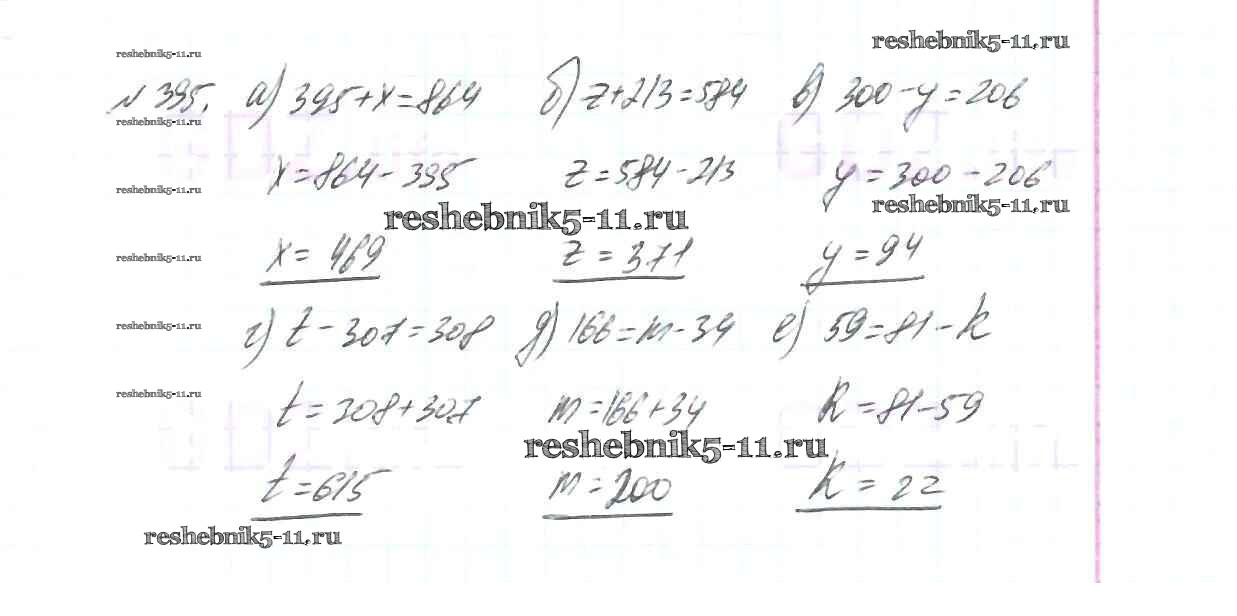 reshebnik5-11.ru
reshebnik5-11.ru
№395. а) 395+x=864 б) z+213=584 в) 300-y=206
reshebnik5-11.ru
x=864-395 z=584-213 y=300-206
reshebnik5-11.ru
reshebnik5-11.ru
reshebnik5-11.ru
x=469 z=371 y=94
reshebnik5-11.ru
г) t-307=308 д) 166=m-34 е) 59=81-k
reshebnik5-11.ru
t=308+307 m=166+34 k=81-59
reshebnik5-11.ru
reshebnik5-11.ru
t=615 m=200 k=22
reshebnik5-11.ru